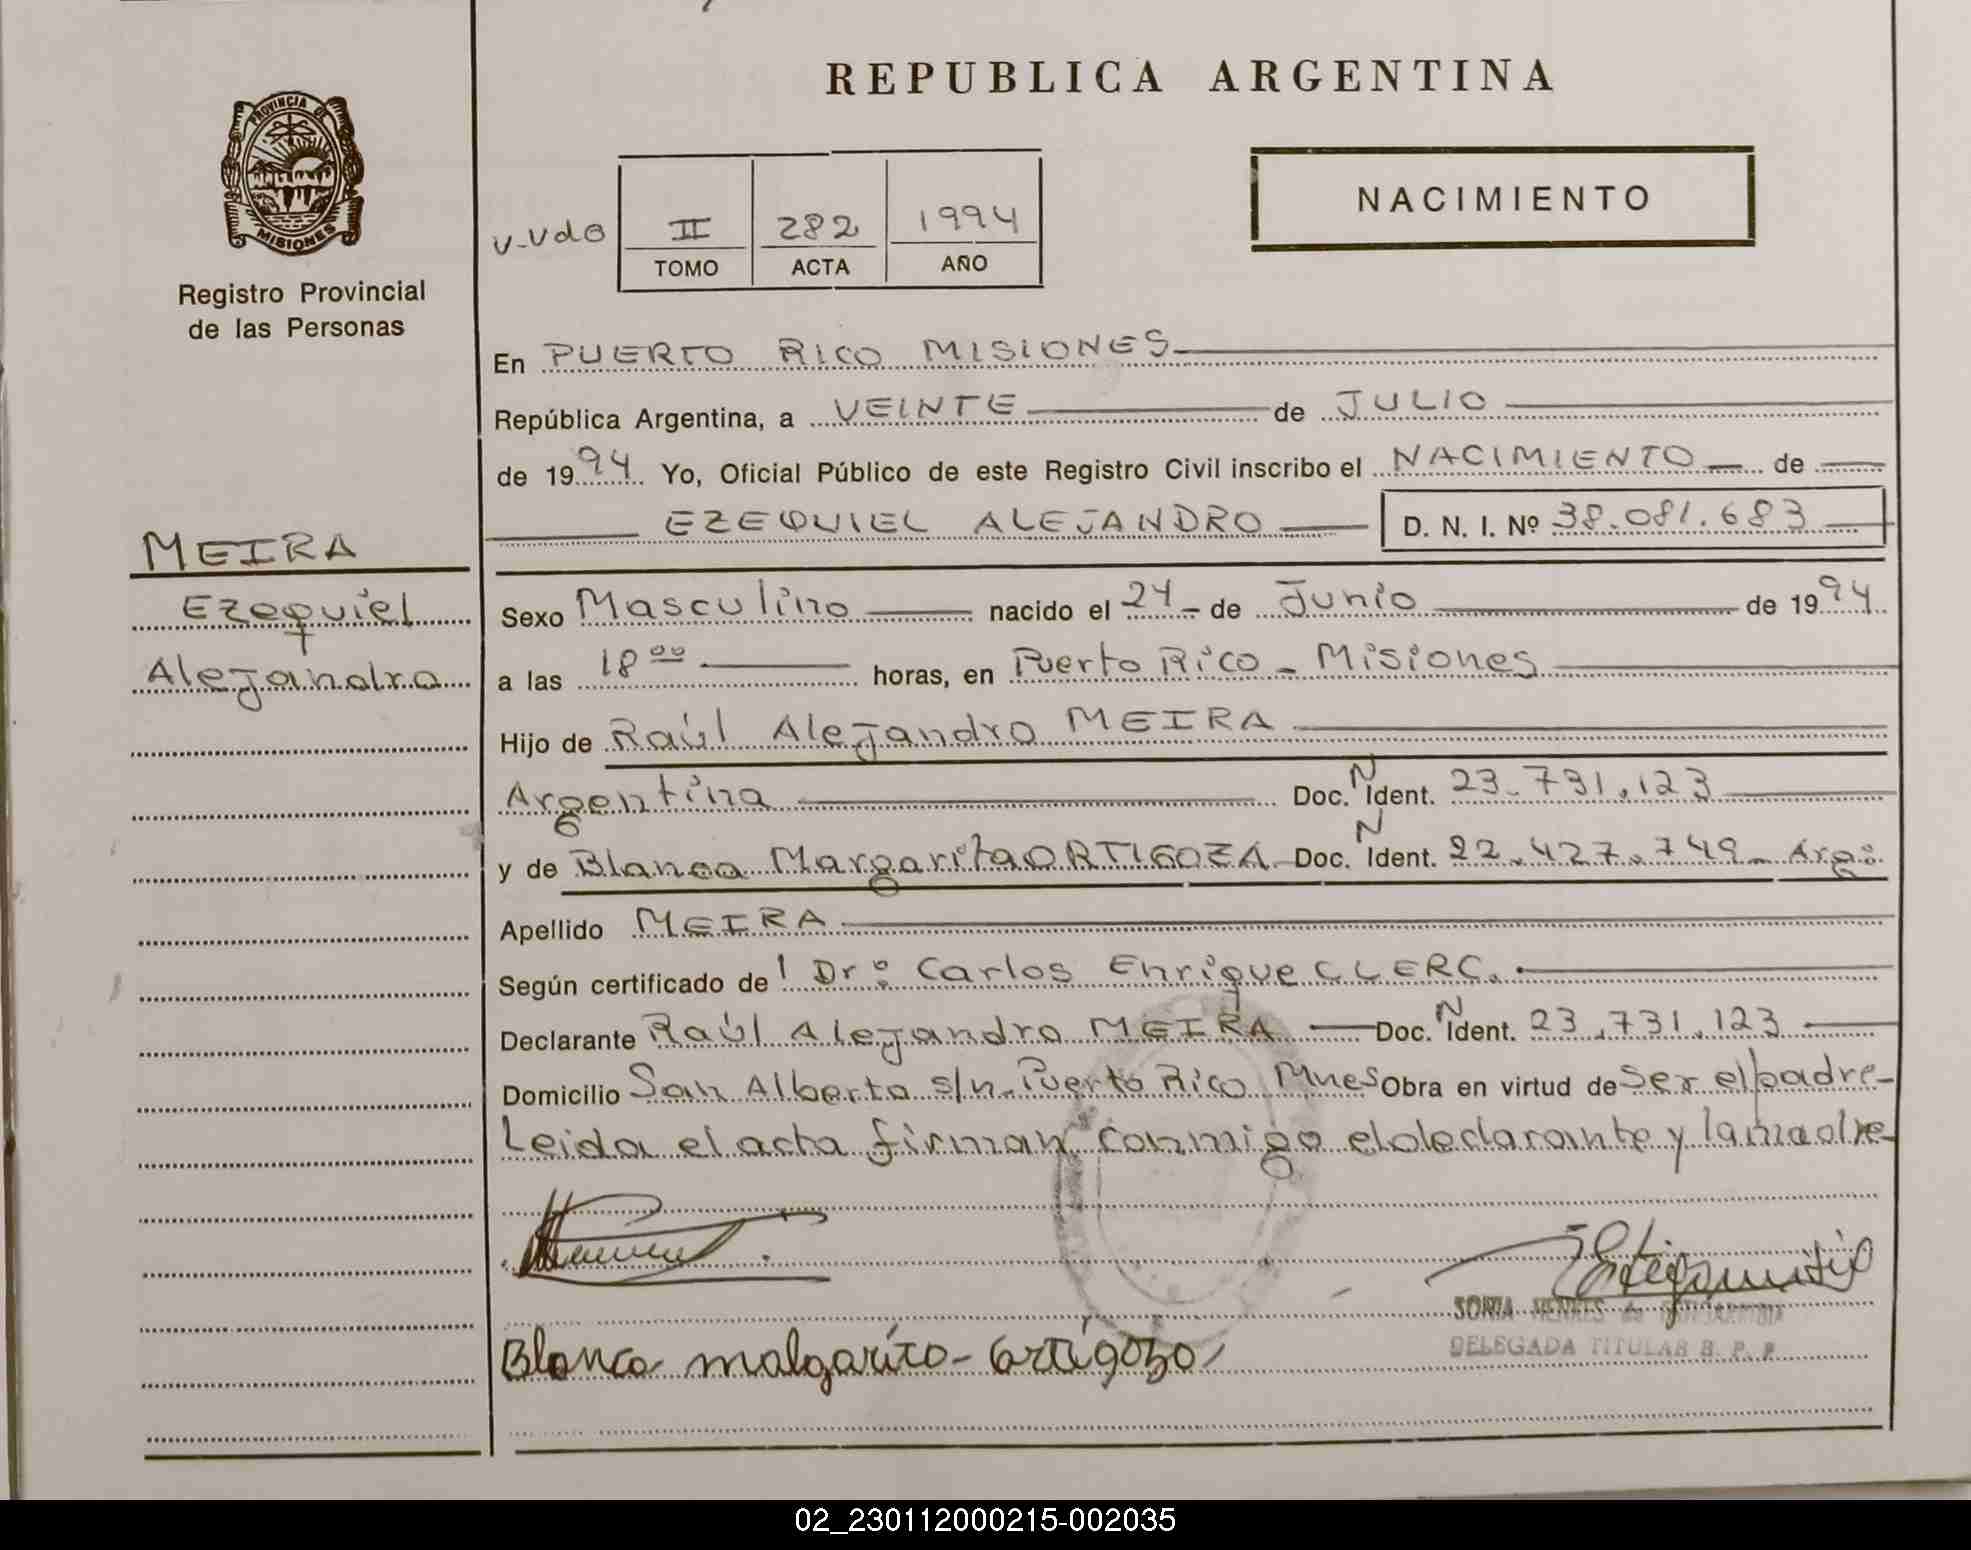 REPUBLICA ARGENTINA
PROVINCIA DE
MISIONES
Registro Provincial
de las Personas
NACIMIENTO
II 282 1994
TOMO ACTA AÑO
En PUERTO RICO MISIONES
República Argentina, a VEINTE de JULIO
de 1994 Yo, Oficial Público de este Registro Civil inscribo el NACIMIENTO de
EZEQUIEL ALEJANDRO D. N. I. Nº 38.081.683
MEIRA
Ezequiel
Alejandro
Sexo Masculino nacido el 24 - de Junio de 1994
a las 18 00 horas, en Puerto Rico - Misiones
Hijo de Raúl Alejandro MEIRA
Argentina Doc. N Ident. 23.731.123
y de Blanca Margarita ORTIGOZA Doc. N Ident. 22.427.749 - Arg:
Apellido MEIRA
Según certificado de l Dr: Carlos Enrique CLERC.
Declarante Raúl Alejandro MEIRA Doc. N Ident. 23.731.123
Domicilio San Alberto s/n - Puerto Rico Mnes Obra en virtud de Ser el padre -
Leida el acta firman conmigo el declarante y la madre -
SONIA HENKES de
DELEGADA TITULAR R. P. P.
Blanca malgarita - Ortigoza
02_230112000215-002035